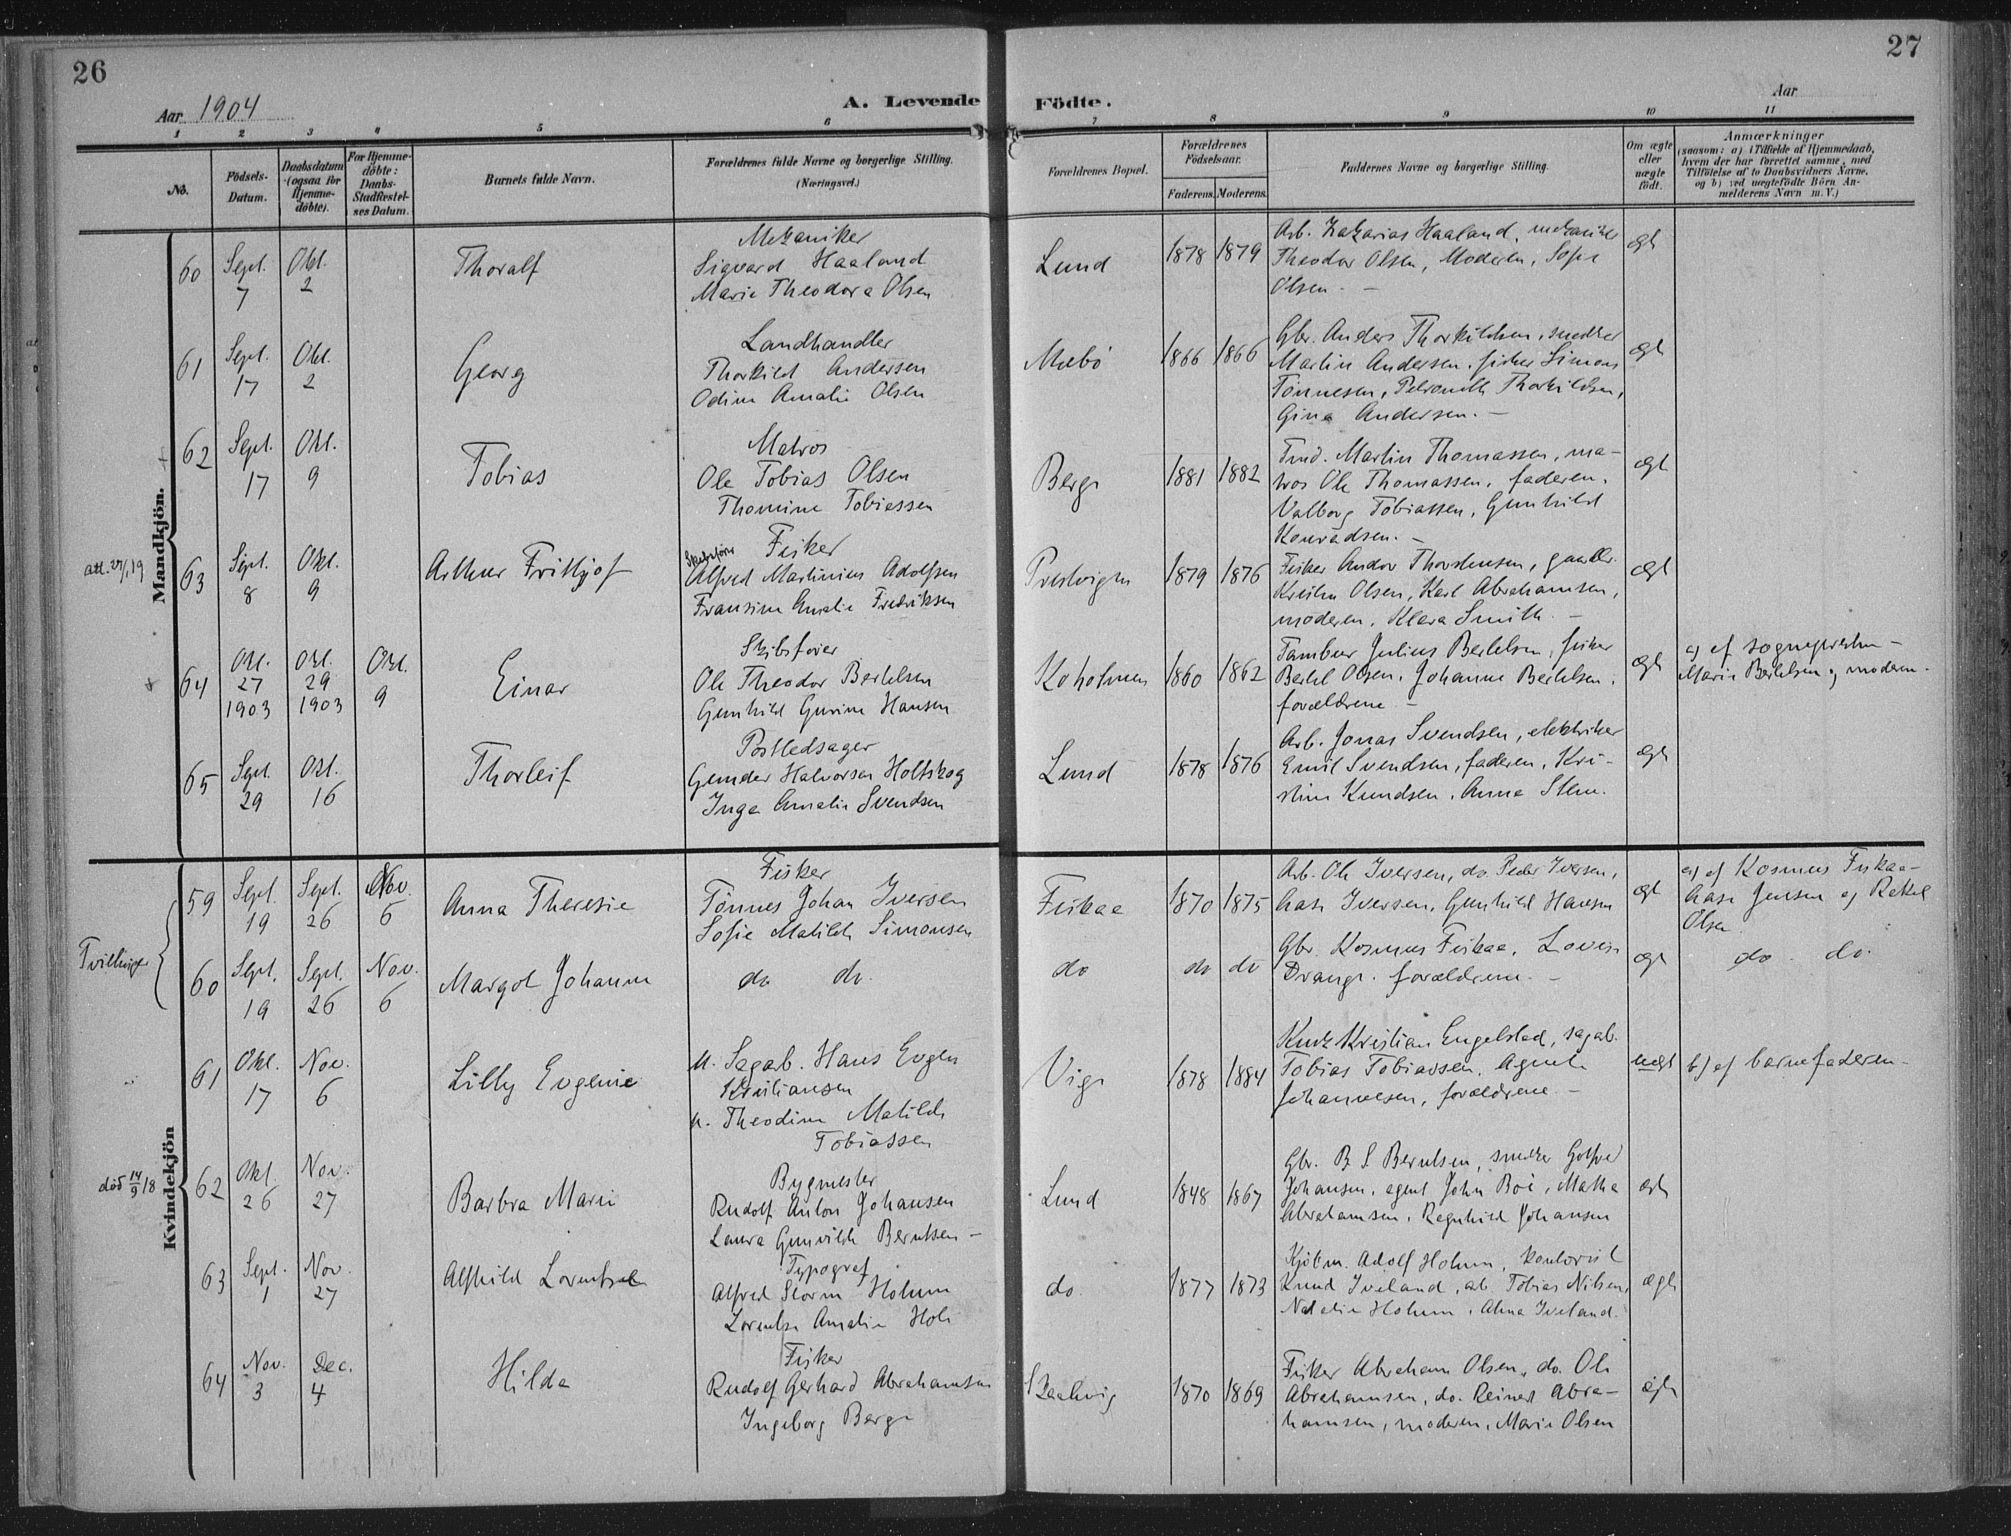 26
27
Aar 1904
A. Levende
Födte.
Aar
1 2 3 4 5 6 7 8 9 10 11
No.
Födsels-
Datum.
Daabsdatum
(ogsaa for
Hjemme-
døbte).
For Hjemme-
døbte:
Daabs-
Stadfæstel-
ses Datum.
Barnets fulde Navn.
Forældrenes fulde Navne og borgerlige Stilling.
(Næringsvei.)
Forældrenes Bopæl.
Forældrenes
Födselsaar.
Faderens. Moderens.
Faddernes Navne og borgerlige Stilling.
Om ægte
eller
uægte
født.
Anmærkninger
(saasom: a) i Tilfælde af Hjemmedaab,
hvem der har forrettet samme, med
Tilföielse af to Daabsvidners Navne,
og b) ved uægtefödte Börn An-
melderens Navn m. V.)
Mandkjön.
60 Sept. 7 Okt. 2 Thoralf
Mekaniker
Sigvard Haaland
Marie Theodora Olsen
Lund 1878 1879
Arb. Zakarias Haaland, mekaniker
Theodor Olsen, Moderen, Sofie
Olsen. –
ægt
61 Sept. 17 Okt. 2 Georg
Landhandler
Thorkild Andersen
Odine Amalie Olsen
Mæbø 1866 1866
Gbr. Anders Thorkildsen, snedker
Martin Andersen, fisker Simon
Tønnesen, Petronille Thorkildsen,
Gina Andersen. –
ægt
62 Sept. 17 Okt. 9 Tobias
Matros
Ole Tobias Olsen
Thomine Tobiassen
Berge 1881 1882
Martin Thomassen, ma-
tros Ole Thomassen, faderen,
Valborg Tobiassen, Gunhild
Konradsen. –
ægt
63 Sept. 8 Okt. 9 Arthur Frithjof
Skibsfører Fisker
Alfred Martinius Adolfsen
Fransine Amalie Fredriksen
Prestvigen 1879 1876
Fisker Andor Thorstensen, gaardbr.
Kristen Olsen, Karl Abrahamsen,
moderen, Klara Smith. –
ægt
64 Okt. 27 1903 Okt. 29 1903 Okt. 9 Einar
Skibsfører
Ole Theodor Bertelsen
Gunhild Gurine Hansen
Koholmen 1860 1862
Tambur Julius Bertelsen, fisker
Bertel Olsen, Johanne Bertelsen,
forældrene –
ægt
a) af sognepresten –
Marie Bertelsen og moderen.
65 Sept. 29 Okt. 16 Thorleif
Postledsager
Gunder Halvorsen Holtskog
Inga Amalie Svendsen
Lund 1878 1876
Arb. Jonas Svendsen, elektriker
Emil Svendsen, faderen, Kri-
stine Knudsen, Anna Steen.
ægt
Kvindekjön
Tvillinger
59 Sept. 19 Sept. 26 Nov. 6 Anna Theresie
Fisker
Tønnes Johan Iversen
Sofie Matilde Simonsen
Fiskaa 1870 1875
Arb. Ole Iversen, do. Peder Iversen,
Aase Iversen, Gunhild Hansen
ægt
a) af Rasmus Fiskaa –
Aase Jensen og Rakel
Olsen
60 Sept. 19 Sept. 26 Nov. 6 Margot Johanne
do do.
do do do
Gbr. Rasmus Fiskaa, Lovise
Drange, forældrene. –
ægt
do. do.
61 Okt. 17 Nov. 6 Lilly Evgenie
u. Sagab. Hans Evgen
Kristiansen
u. Theodine Matilde
Tobiassen
Vige 1878 1884
Kusk Kristian Engelstad, sagab.
Tobias Tobiassen, Agnete
Johannesen, forældrene. –
uægt
b) af barnefaderen –
død 14/9 18
62 Okt. 26 Nov. 27 Barbra Marie
Bygmester
Rudolf Anton Johansen
Laura Gunvilde Berntsen –
Lund 1848 1867
Gbr. B S Berntsen, snedker Gotfred
Johansen, agent John Boie, Martha
Abrahamsen, Ragnhild Johansen
ægt
63 Sept. 1 Nov. 27 Alfhild Lorentze
Typograf
Alfred Storm Holum
Lorentze Amalie Holi
do. 1877 1873
Kjøbm. Adolf Holum, kontorist
Knud Iveland, ab. Tobias Nilsen,
Natalie Holum, Alma Iveland.
ægte
64 Nov. 3 Dec. 4 Hilda
Fisker
Rudolf Gerhard Abrahamsen
Ingeborg Berge
Skaalevig 1870 1869
Fisker Abraham Olsen, do. Ole
Abrahamsen, do. Reinert Abra-
hamsen, moderen, Marie Olsen
ægte